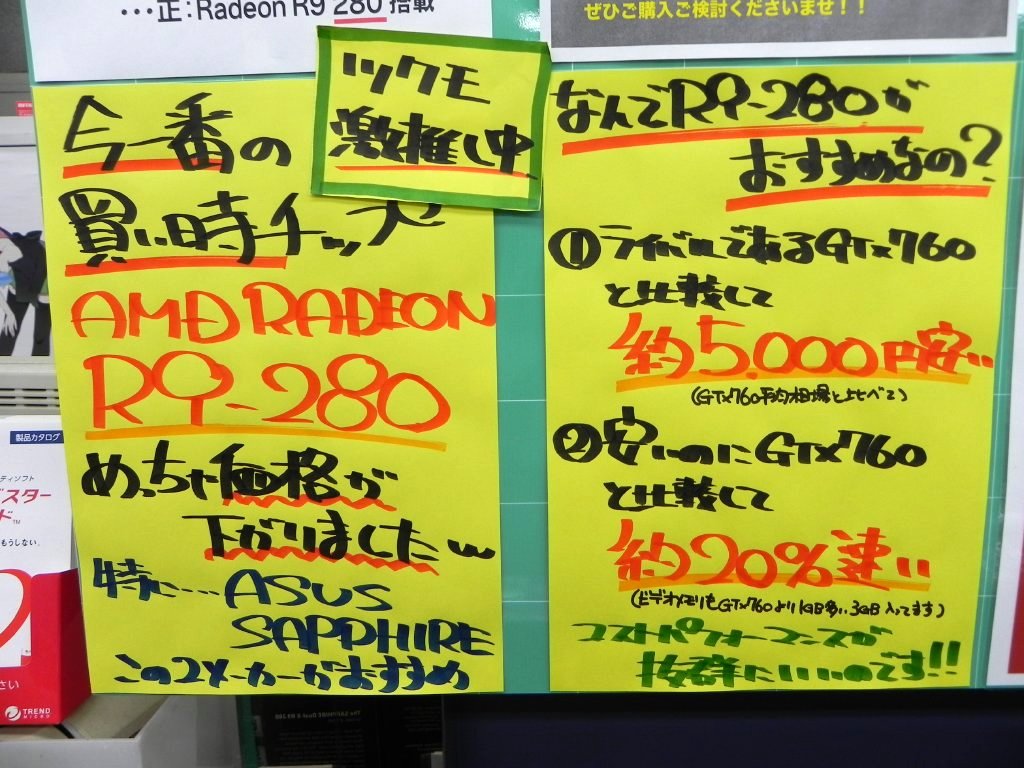 …正：Radeon R9 280 搭載
ぜひご購入ご検討くださいませ！！
ツクモ
激推し中
今一番の
買い時チップ
AMD RADEON
R9-280
めっちゃ価格が
下がりましたw
特に…ASUS
SAPPHIRE
この2メーカーがおすすめ
なんでR9-280が
おすすめなの?
①ライバルであるGTX760
と比較して
約5.000円安い
(GTX760平均相場と比べて)
②安いのにGTX760
と比較して
約20%速い
(ビデオメモリもGTX760より1GB多い3GB入ってます)
コストパフォーマンスが
抜群にいいのです!!
製品カタログ
ティソフト
スター
ド™
もうしない。
さい
TREND
MICRO